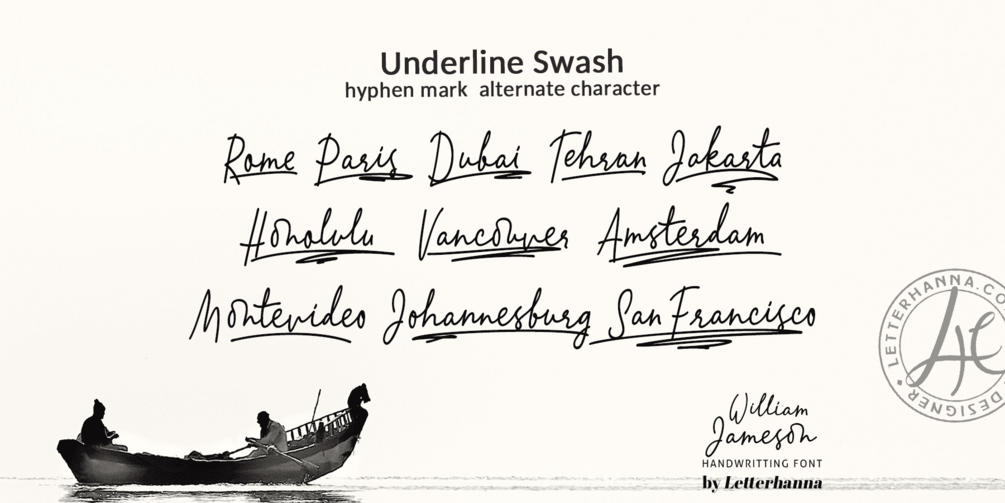 Underline Swash
hyphen mark alternate character
Rome Paris Dubai Tehran Jakarta
Honolulu Vancouver Amsterdam
Montevideo Johannesburg San Francisco
LETTERHANNA.CO
DESIGNER
William
Jameson
HANDWRITTING FONT
by Letterhanna